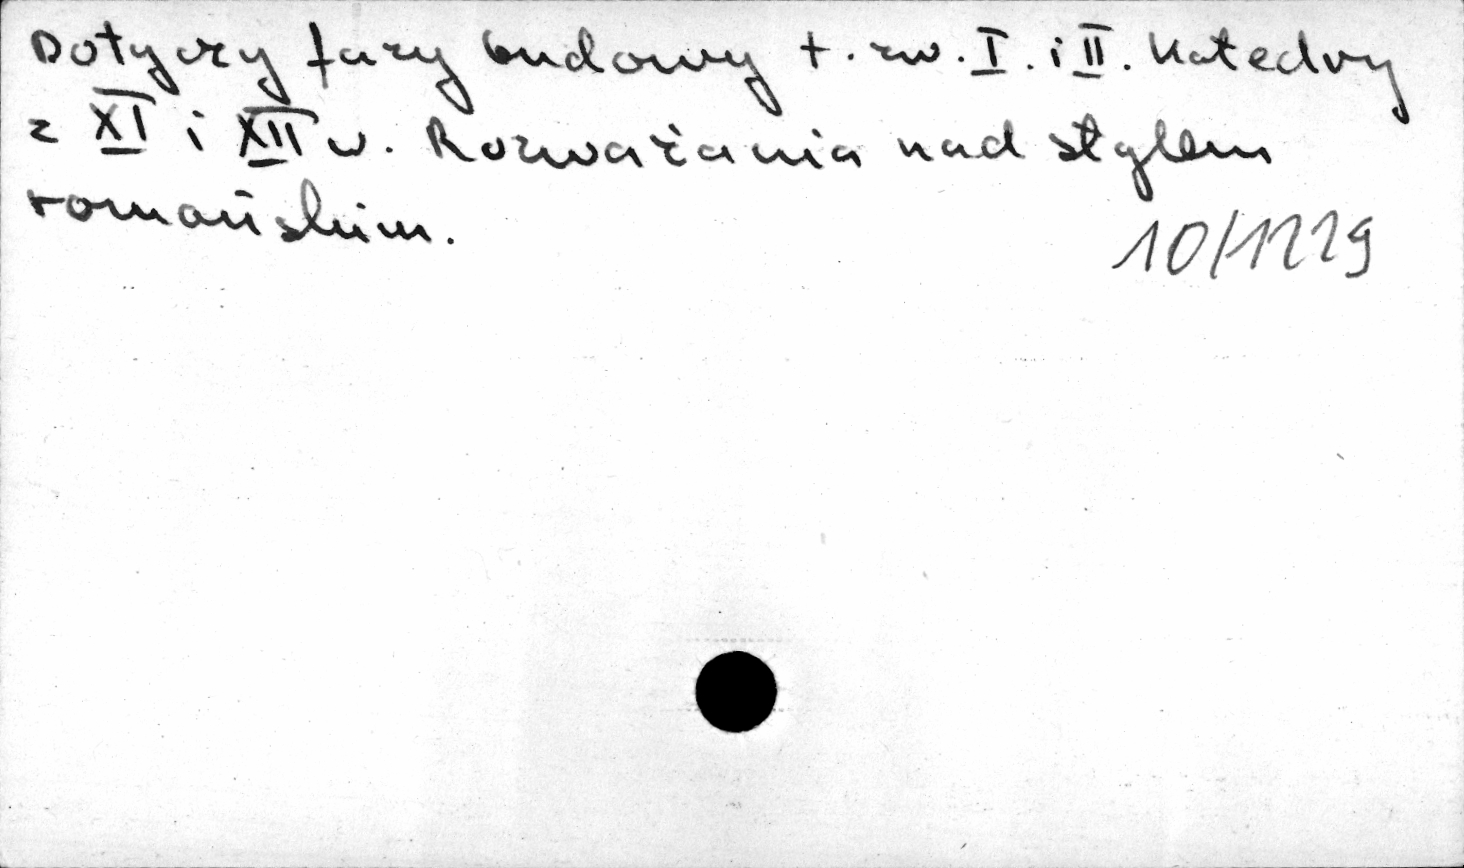 Dotyczy fazy budowy t. zw. I. i II. Katedry
z XI i XII w. Rozważania nad stylem
romańskim.
10/1229